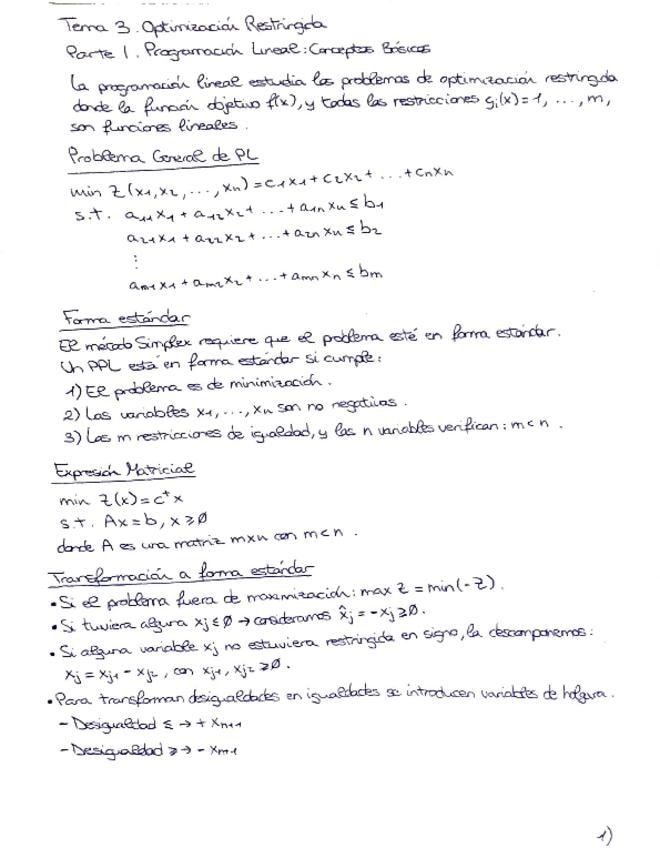 Tema 3. Optimización Restringida
Parte 1. Programación Lineal: Conceptos Básicos
La programación lineal estudia los problemas de optimización restringida
donde la función objetivo f(x), y todas las restricciones gᵢ(x)=1, ..., m,
son funciones lineales.
Problema General de PL
min Z(x₁,x₂, ..., xₙ)=c₁x₁+c₂x₂+ ...+cₙxₙ
s.t. a₁₁x₁ + a₁₂x₂+ ...+a₁ₙxₙ≤b₁
a₂₁x₁ + a₂₂x₂ + ...+a₂ₙxₙ≤b₂
⋮
aₘ₁x₁+aₘ₂x₂+ ...+aₘₙxₙ≤bₘ
Forma estándar
El método Simplex requiere que el problema esté en forma estándar.
Un PPL está en forma estándar si cumple:
1) El problema es de minimización.
2) Las variables x₁, ..., xₙ son no negativas.
3) Las m restricciones de igualdad, y las n variables verifican: m<n.
Expresión Matricial
min Z(x)=cᵗx
s.t. Ax=b, x≥0
donde A es una matriz mxn con m<n.
Transformación a forma estándar
• Si el problema fuera de maximización: max Z = min(-Z).
• Si tuviera alguna xⱼ≤0 → consideramos x̂ⱼ=-xⱼ≥0.
• Si alguna variable xⱼ no estuviera restringida en signo, la descomponemos:
xⱼ=xⱼ₁ - xⱼ₂, con xⱼ₁, xⱼ₂≥0.
• Para transforman desigualdades en igualdades se introducen variables de holgura.
- Desigualdad ≤ → + xₙ₊₁
- Desigualdad ≥ → - xₙ₊₁
1)